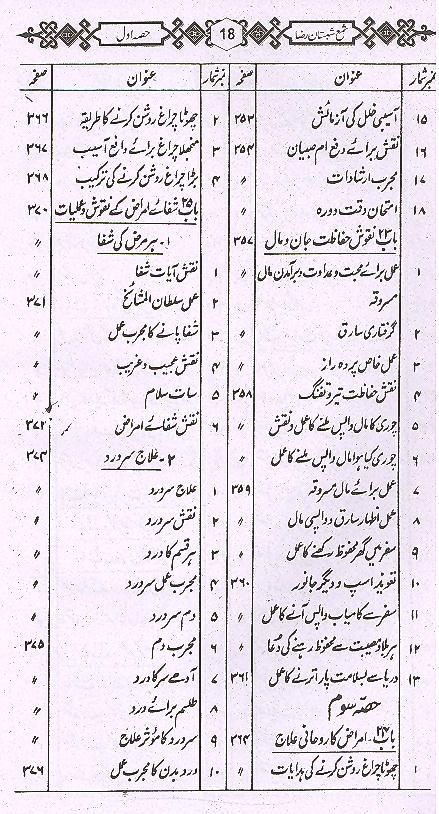 شمع شبستان رضا 18 حصہ اول
نمبرشمار عنوان صفحہ
۱۵ آسیبی خلل کی آزمائش ۳۵۳
۱۶ نقش برائے دفع ام صبیان ۳۵۴
۱۷ مجرب ارشادات 〃
۱۸ امتحان دقت دورہ 〃
باب ۲۳ نقوش حفاظت جان و مال ۳۵۷
۱ عمل برائے محبت و عداوت و برآمدن مال 〃
مسروقہ
۲ گرفتاری سارق 〃
۳ عمل خاص پردہ راز 〃
۴ نقش حفاظت تیر و تفنگ ۳۵۸
۵ چوری کا مال واپس ملنے کا عمل و نقش 〃
۶ چوری کیا ہوا مال واپس ملنے کا عمل 〃
۷ عمل برائے مال مسروقہ ۳۵۹
۸ عمل اظہار سارق و واپسی مال 〃
۹ سفر میں گھر محفوظ رکھنے کا عمل 〃
۱۰ تعویذ اسپ و دیگر جانور ۳۶۰
۱۱ سفر سے کامیاب واپس آنے کا عمل 〃
۱۲ ہر بلا و مصیبت سے محفوظ رہنے کی دُعا 〃
۱۳ دریا سے بسلامت پار اترنے کا عمل ۳۶۱
حصہ سوم
باب ۲۴ ۔ امراض کا روحانی علاج ۳۶۴
۱ چھوٹا چراغ روشن کرنے کی ہدایات 〃
نمبرشمار عنوان صفحہ
۲ چھوٹا چراغ روشن کرنے کا طریقہ ۳۶۶
۳ منجھلا چراغ برائے دافع آسیب ۳۶۷
۴ بڑا چراغ روشن کرنے کی ترکیب ۳۶۸
باب ۲۵ شفائے امراض کے نقوش و عملیات ۳۷۰
۱۔ ہر مرض کی شفا 〃
۱ نقش آیات شفا 〃
۲ عمل سلطان المشائخ ۳۷۱
۳ شفا پانے کا مجرب عمل 〃
۴ نقش عجیب و غریب 〃
۵ سات سلام 〃
۶ نقش شفائے امراض ۳۷۲
۲۔ علاج سر درد ۳۷۴
۱ علاج سر درد 〃
۲ نقش سر درد 〃
۳ ہر قسم کا درد 〃
۴ مجرب عمل سر درد 〃
۵ دم سر درد 〃
۶ مجرب دم ۳۷۵
۷ آدھے سر کا درد 〃
۸ طلسم برائے درد 〃
۹ سر درد کا مؤثر علاج 〃
۱۰ درد بدن کا مجرب عمل ۳۷۶